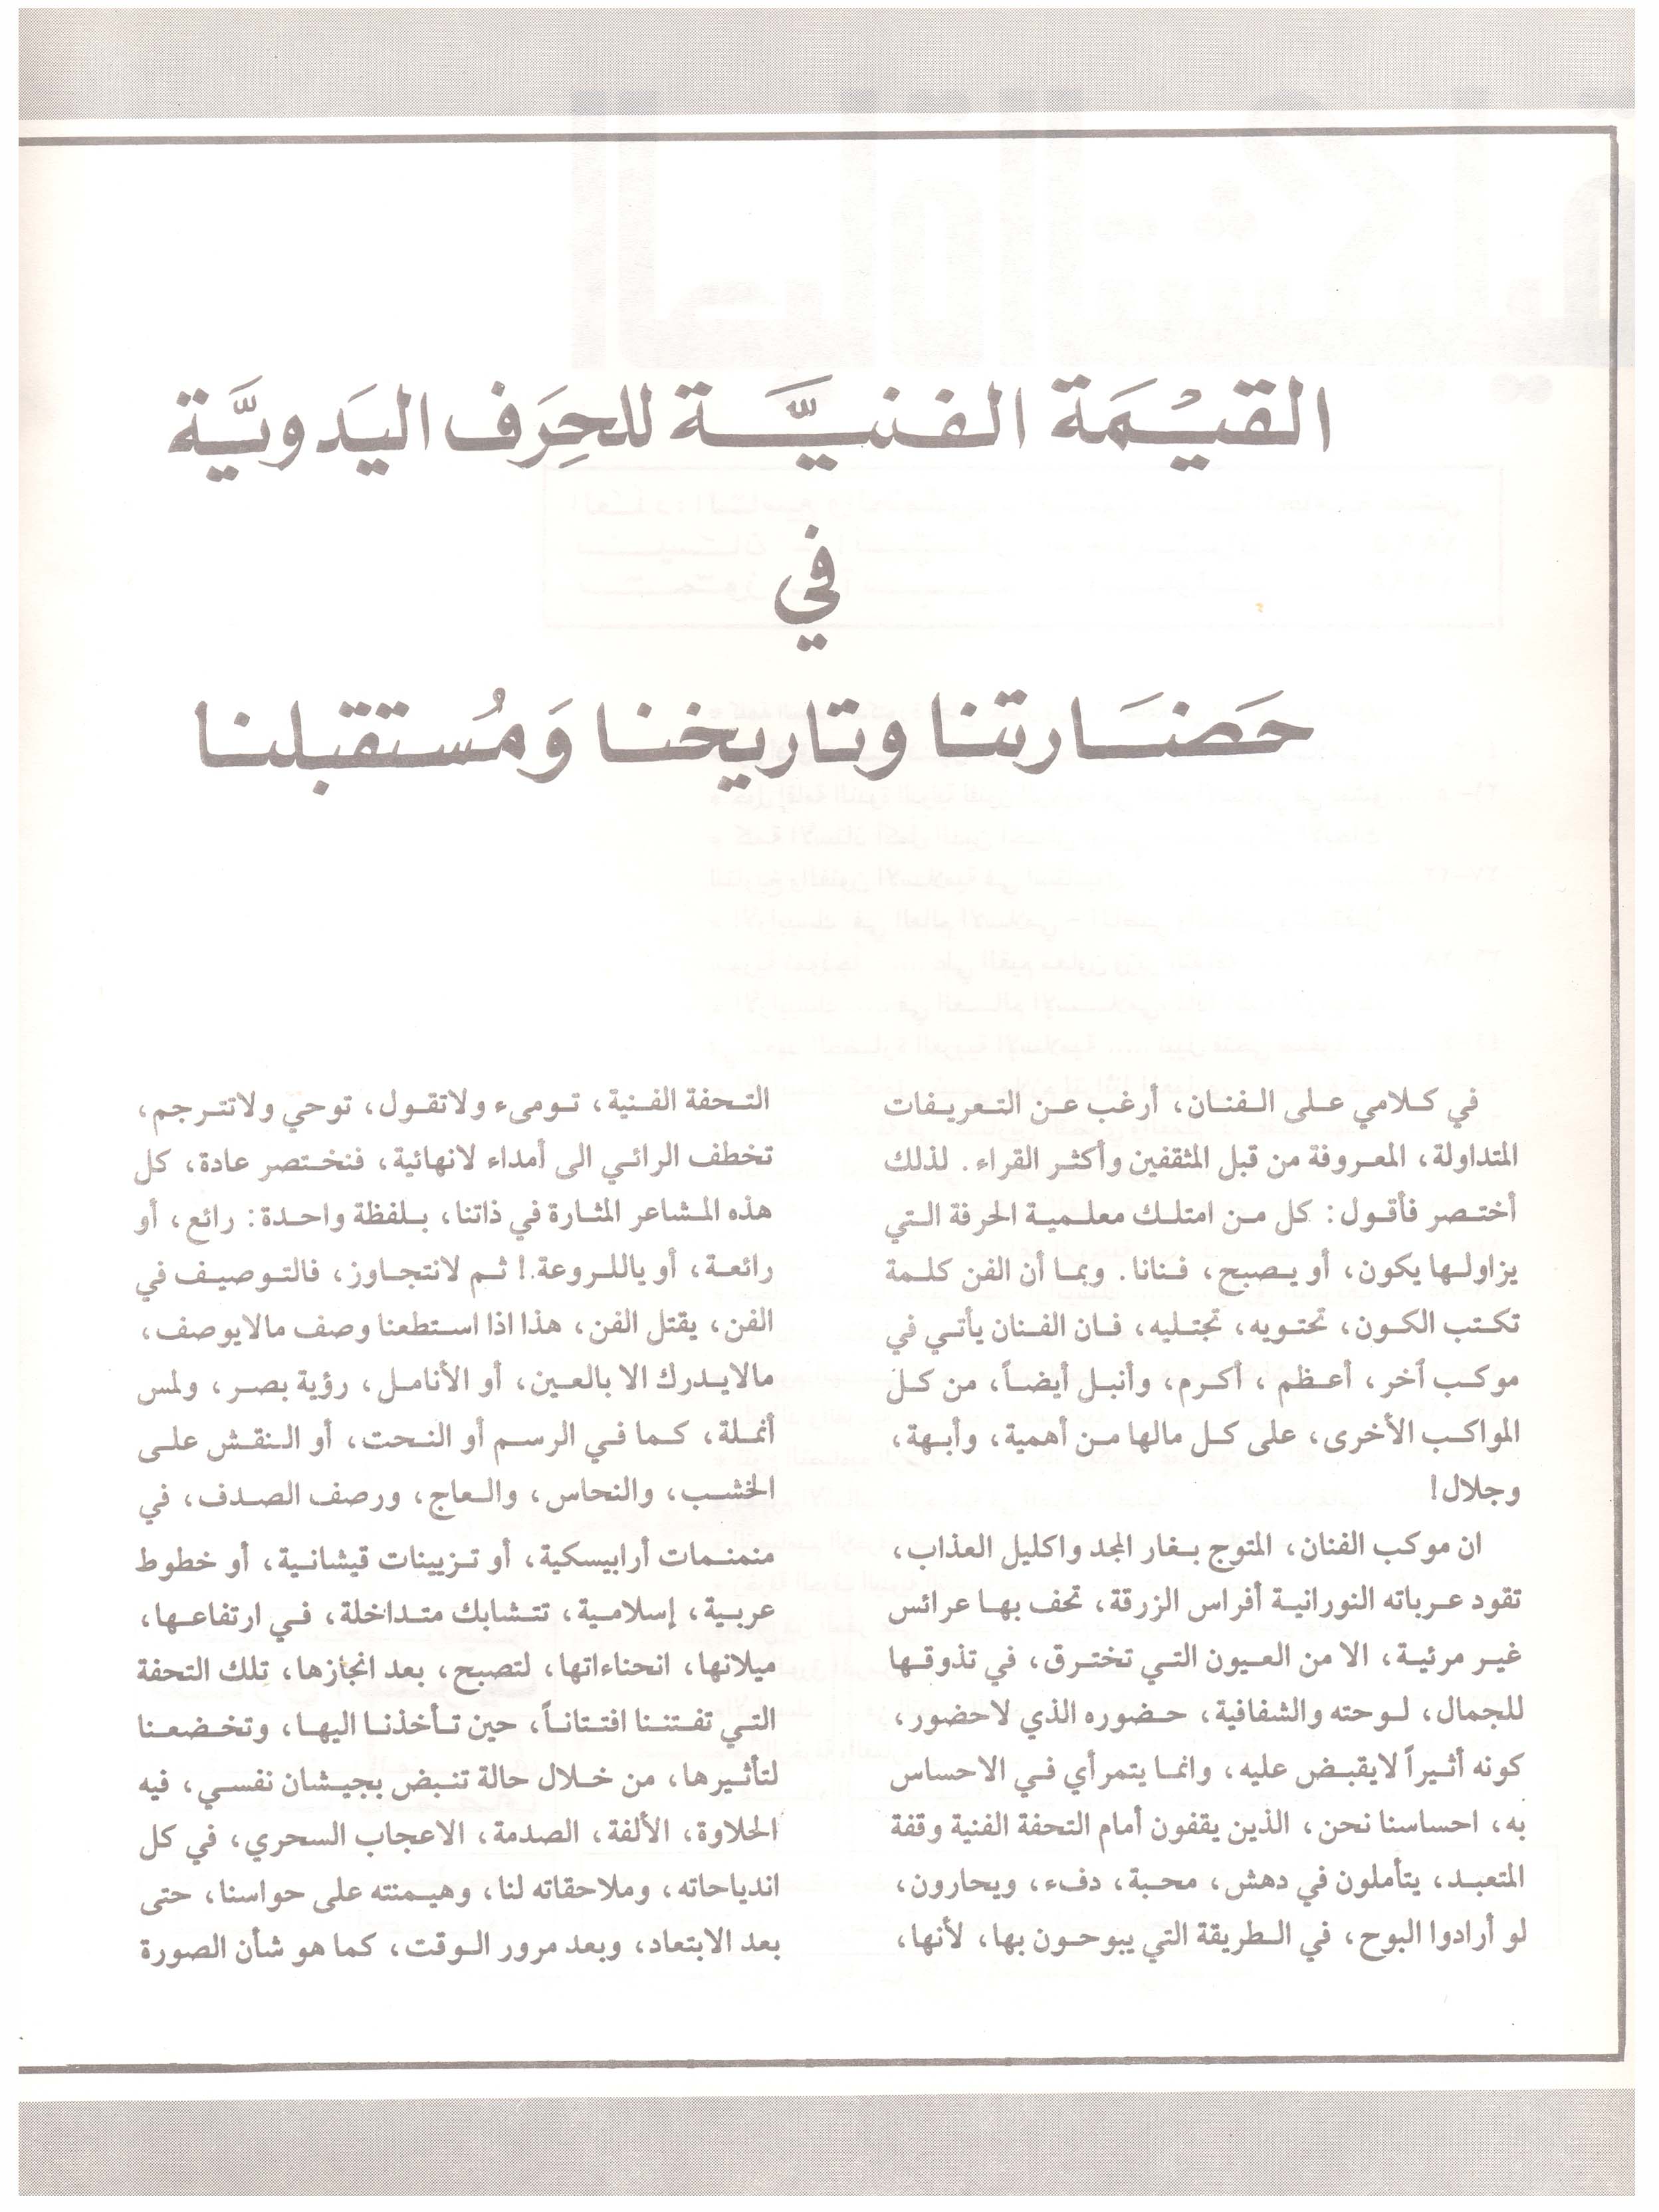 القيْمَة الفنيَّة للحِرَف اليَدويَّة
في
حَضَارتنا وتاريخنا وَمُستقبلنا
في كلامي على الفنان، أرغب عن التعريفات
المتداولة، المعروفة من قبل المثقفين وأكثر القراء. لذلك
أختصر فأقول: كل من امتلك معلمية الحرفة التي
يزاولها يكون، أو يصبح، فنانا. وبما أن الفن كلمة
تكتب الكون، تحتويه، تجتليه، فان الفنان يأتي في
موكب آخر، أعظم، أكرم، وأنبل أيضاً، من كل
المواكب الأخرى، على كل مالها من أهمية، وأبهة،
وجلال!
ان موكب الفنان، المتوج بغار المجد واكليل العذاب،
تقود عرباته النورانية أفراس الزرقة، تحف بها عرائس
غير مرئية، الا من العيون التي تخترق، في تذوقها
للجمال، لوحته والشفافية، حضوره الذي لاحضور،
كونه أثيراً لايقبض عليه، وانما يتمرأي في الاحساس
به، احساسنا نحن، الذين يقفون أمام التحفة الفنية وقفة
المتعبد، يتأملون في دهش، محبة، دفء، ويحارون،
لو أرادوا البوح، في الطريقة التي يبوحون بها، لأنها،
التحفة الفنية، تومىء ولاتقول، توحي ولاتترجم،
تخطف الرائي الى أمداء لانهائية، فنختصر عادة، كل
هذه المشاعر المثارة في ذاتنا، بلفظة واحدة: رائع، أو
رائعة، أو ياللروعة.! ثم لانتجاوز، فالتوصيف في
الفن، يقتل الفن، هذا اذا استطعنا وصف مالايوصف،
مالايدرك الا بالعين، أو الأنامل، رؤية بصر، ولمس
أنملة، كما في الرسم أو النحت، أو النقش على
الخشب، والنحاس، والعاج، ورصف الصدف، في
منمنمات أرابيسكية، أو تزيينات قيشانية، أو خطوط
عربية، إسلامية، تتشابك متداخلة، في ارتفاعها،
ميلانها، انحناءاتها، لتصبح، بعد انجازها، تلك التحفة
التي تفتننا افتتاناً، حين تأخذنا اليها، وتخضعنا
لتأثيرها، من خلال حالة تنبض بجيشان نفسي، فيه
الحلاوة، الألفة، الصدمة، الاعجاب السحري، في كل
اندياحاته، وملاحقاته لنا، وهيمنته على حواسنا، حتى
بعد الابتعاد، وبعد مرور الوقت، كما هو شأن الصورة